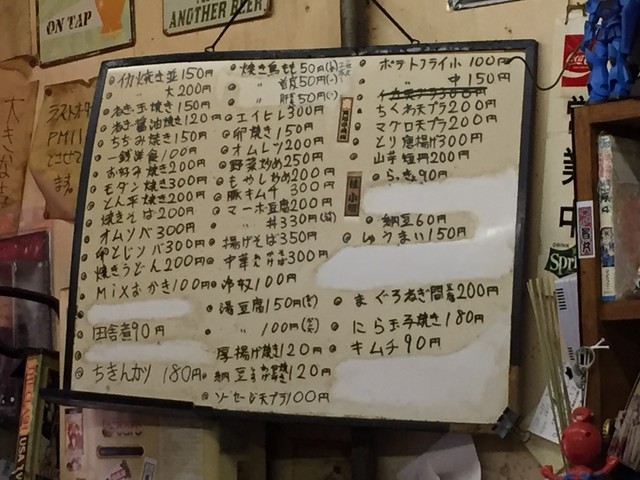 ON TAP
ANOTHER BEER
イカ焼き並150円
〃 大200円
ねぎ玉焼き150円
ねぎ醤油焼き120円
ちぢみ焼き150円
一銭洋食100円
お好み焼き200円
モダン焼き300円
とん平焼き200円
焼きそば200円
オムソバ300円
卵とじソバ300円
焼きうどん200円
MiXおかき100円
田舎煮90円
ちきんカツ 180円
焼き鳥もも50円
〃 首皮50円
〃 肝50円
エイヒレ300円
卵焼き150円
オムレツ200円
野菜炒め250円
もやし炒め200円
豚キムチ 300円
マーボ豆腐200円
〃 丼330円
揚げそば350円
中華 300円
冷奴100円
湯豆腐150円
〃 100円
厚揚げ焼き120円
納豆 120円
ソーセージ天プラ100円
ポテトフライ小100円
〃 中150円
ちくわ天プラ200円
マグロ天プラ200円
とり唐揚げ300円
山芋短冊200円
らっき90円
納豆60円
しゅうまい150円
まぐろねぎ間 200円
にら玉子焼き180円
キムチ90円
ラストオーダー
PM11
とさせて
ます。
営業中
Spri